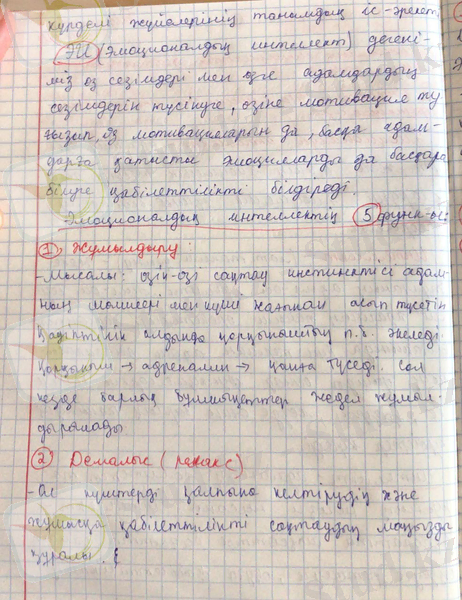 күрделі жүйелерінің танымдық іс-әрекеті
ЭИ (Эмоционалдық интеллект) дегені-
міз өз сезімдері мен өзге адамдардың
сезімдерін түсінуге, өзіне мотивация ту
ғызып, өз мотивацияларын да, басқа адам-
дарға қатысты эмоцияларды да басқара
білуге қабілеттілікті білдіреді.
Эмоционалдық интеллектің 5 функ-сы:
1) Жұмылдыру:
- Мысалы: өзін-өзі сақтау инстинктісі адам-
ның мөлшері мен күші жағынан асып түсетін
қауіптінің алдында қорқыныштың п.б. әкеледі.
Қорқыныш → адреналин → қанға түседі. Сол
кезде барлық бұлшықеттер жедел жұмыл-
дырылады
2 Демалыс (релакс)
- Ол күштерді қалпына келтірудің және
жұмысқа қабілеттілікті сақтаудың маңызды
құралы.